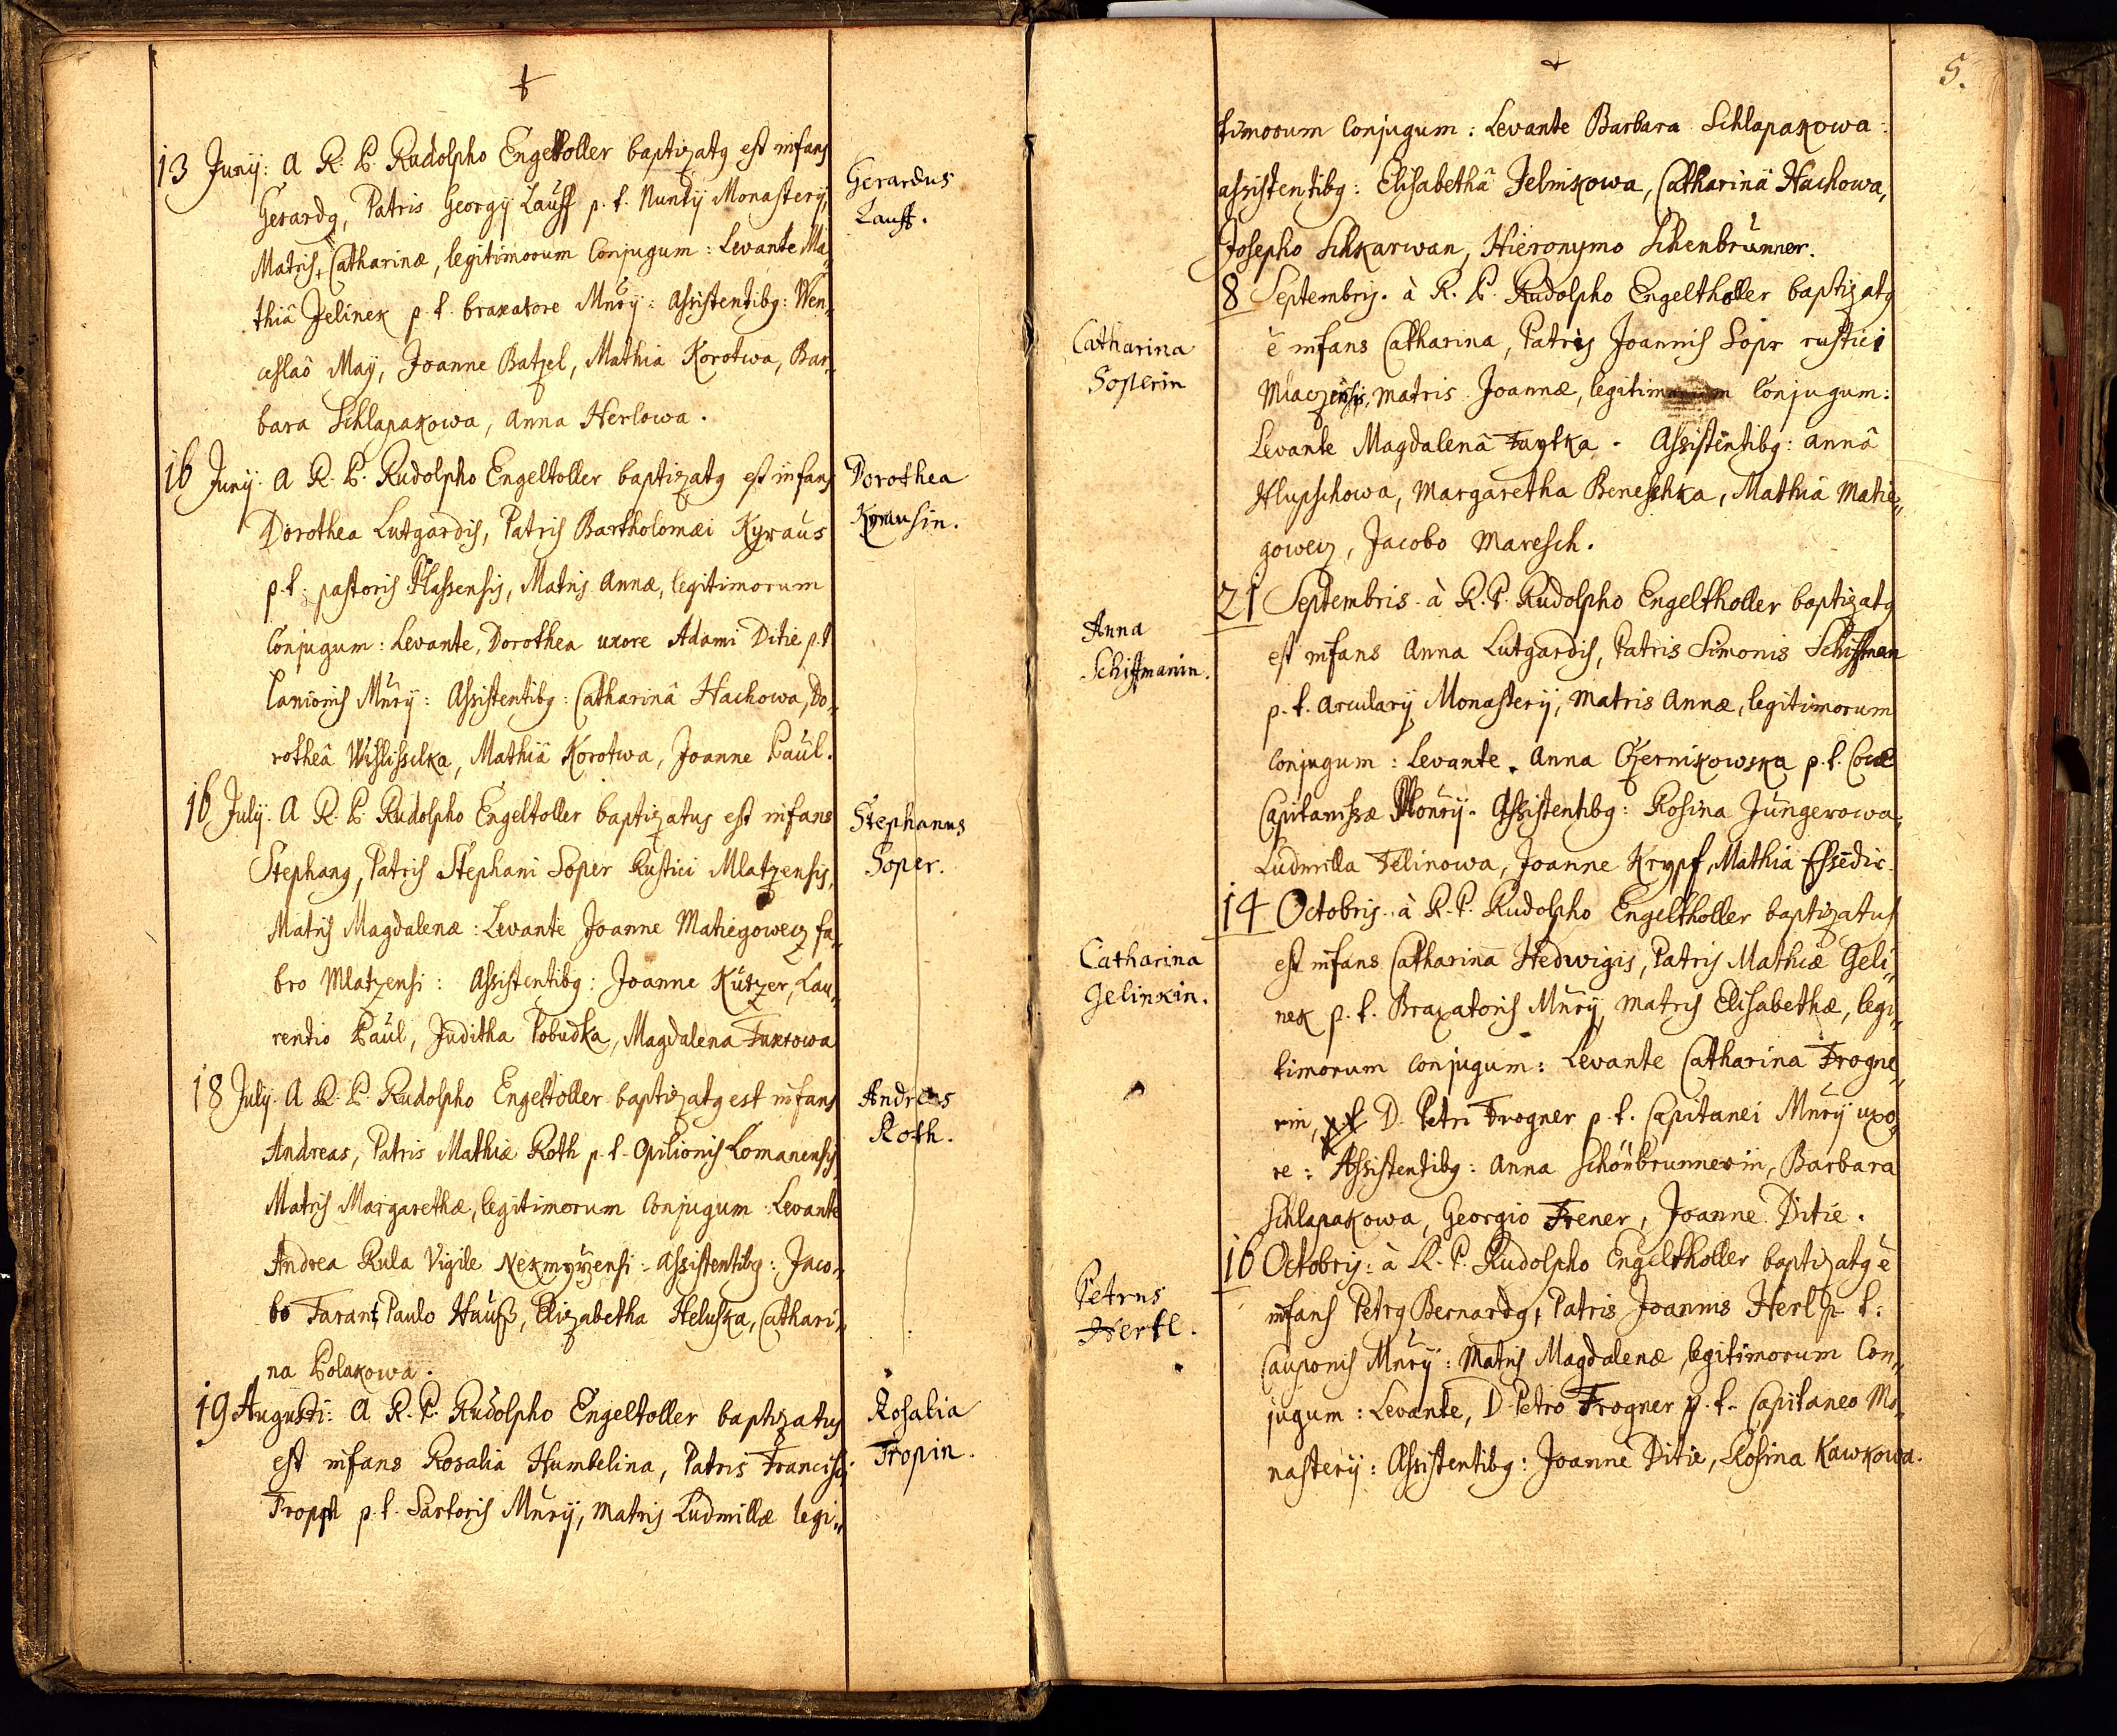 13 Junÿ: A R. P. Rudolpho Engeltoller baptizatg est infans
Gerardg, Patris Georgÿ Lauff p. t. Nuntÿ Monasterÿ,
Matris, Catharinæ, legitimorum Conjugum: Levante Ma„
thiâ Jelinek p. t. braxatore Mnrÿ: Assistentibg: Wen„
ceslaô Maÿ, Joanne Batzel, Mathia Korotwa, Bar„
bara Schlapakowa, Anna Herlowa.
Gerardus
Lauff.
16 Junÿ. A R. P. Rudolpho Engeltoller baptizatg est infans
Dorothea Lutgardis, Patris Bartholomæi Kyraus
p. t. pastoris Plassensis, Matris Annæ, legitimorum
Conjugum: Levante, Dorothea uxore Adami Ditie p. t
Lanionis Mnrÿ: Assistentibg: Catharinâ Hachowa, Do„
rotheâ Wislisilka, Mathiâ Korotwa, Joanne Paul.
Dorothea
Kyrausin.
16 Julÿ. A R. P. Rudolpho Engeltoller baptizatus est infans
Stephang, Patris Stephani Soper Rustici Mlatzensis,
Matris Magdalenæ: Levante Joanne Matiegowecz fa„
bro Mlatzensi: Assistentibg: Joanne Kutzer, Lau„
rentio Paul, Juditha Pobudka, Magdalena Fuxowa
Stephanus
Soper.
18 Julÿ. A R. P. Rudolpho Engeltoller baptizatg est infans
Andreas, Patris Mathiæ Roth p. t. Opilionis Lomanensis,
Matris Margarethæ, legitimorum Conjugum: Levante
Andrea Kula Vigile Nekmyrzensi: Assistentibg: Jaco„
bo Farant, Paulo Hauß, Elizabetha Heluska, Cathari„
na Polakowa.
Andreas
Roth.
19 Augusti: A R. P. Rudolpho Engeltoller baptizatus
est infans Rosalia Humbelina, Patris Francisci
Tropph p. t. Sartoris Mnrÿ, Matris Ludmillæ legi„
Rosalia
Tropin.
5.
timorum Conjugum: Levante Barbara Schlapakowa:
assistentibg: Elisabethâ Jelinkowa, Catharinâ Hachowa,
Josepho Schkarwan, Hieronymo Schenbrunner.
8 Septembris. à R. P. Rudolpho Engeltholler baptizatg
ē infans Catharina, Patris Joannis Sopr rustici
Mlaczensis, Matris Joannæ, legitimorum Conjugum:
Levante Magdalenâ Faytka. Assistentibg: Annâ
Hlupschowa, Margaretha Beneschka, Mathiâ Matie„
gowecz, Jacobo Maresch.
Catharina
Soperin
21 Septembris. à R. P. Rudolpho Engeltholler baptizatg
est infans Anna Lutgardis, Patris Simonis Schiffman
p. t. Arcularÿ Monasterÿ, Matris Annæ, legitimorum
Conjugum: Levante. Anna Czernikowska p. t.
Capitanissæ Mnrÿ. Assistentibg: Rosina Jungerowa,
Ludmilla Felinowa, Joanne Krypf, Mathia
Anna
Schiffmanin.
14 Octobris. à R. P. Rudolpho Engeltholler baptizatus
est infans Catharina Hedwigis, Patris Mathiæ Geli„
nek p. t. Braxatoris Mnrÿ, Matris Elisabethæ, legi„
timorum Conjugum: Levante Catharina Frogne„
rin, D. Petri Frogner p. t. Capitanei Mnrÿ uxo„
re: Assistentibg: Anna Schönbrunnerin, Barbara
Schlapakowa, Georgio Frener, Joanne Ditie.
Catharina
Gelinkin.
16 Octobris: à R. P. Rudolpho Engeltholler baptizatg ē
infans Petrg Bernardg, Patris Joannis Herl p. t:
Cauponis Mnrÿ: Matris Magdalenæ legitimorum Con„
jugum: Levante, D. Petro Frogner p. t. Capitaneo Mo„
nasterÿ: Assistentibg: Joanne Ditie, Rosina Kawkowa.
Petrus
Hertl.